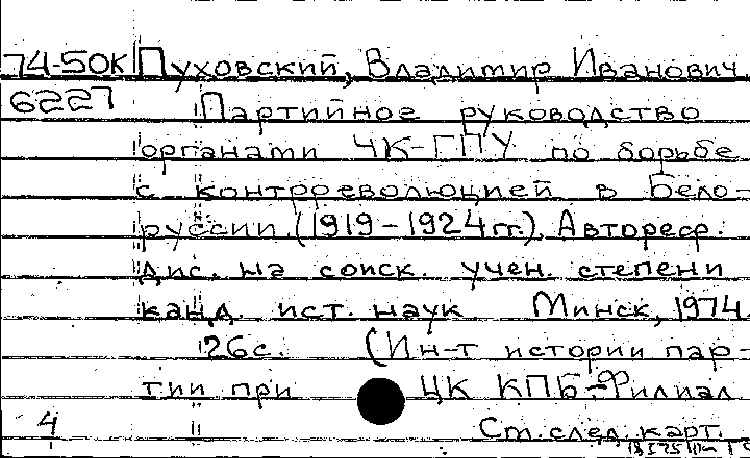 74-50К Пуховский, Владимир Иванович
6227 Партийное руководство
органами ЧК-ГПУ по борьбе
с контрреволюцией в Бело-
руссии. (1919-1924 гг.). Автореф.
дис. на соиск. учен. степени
канд. ист. наук Минск, 1974
26с. (Ин-т истории пар-
тии при ЦК КПБ-Филиал
4 Ст. след. карт.